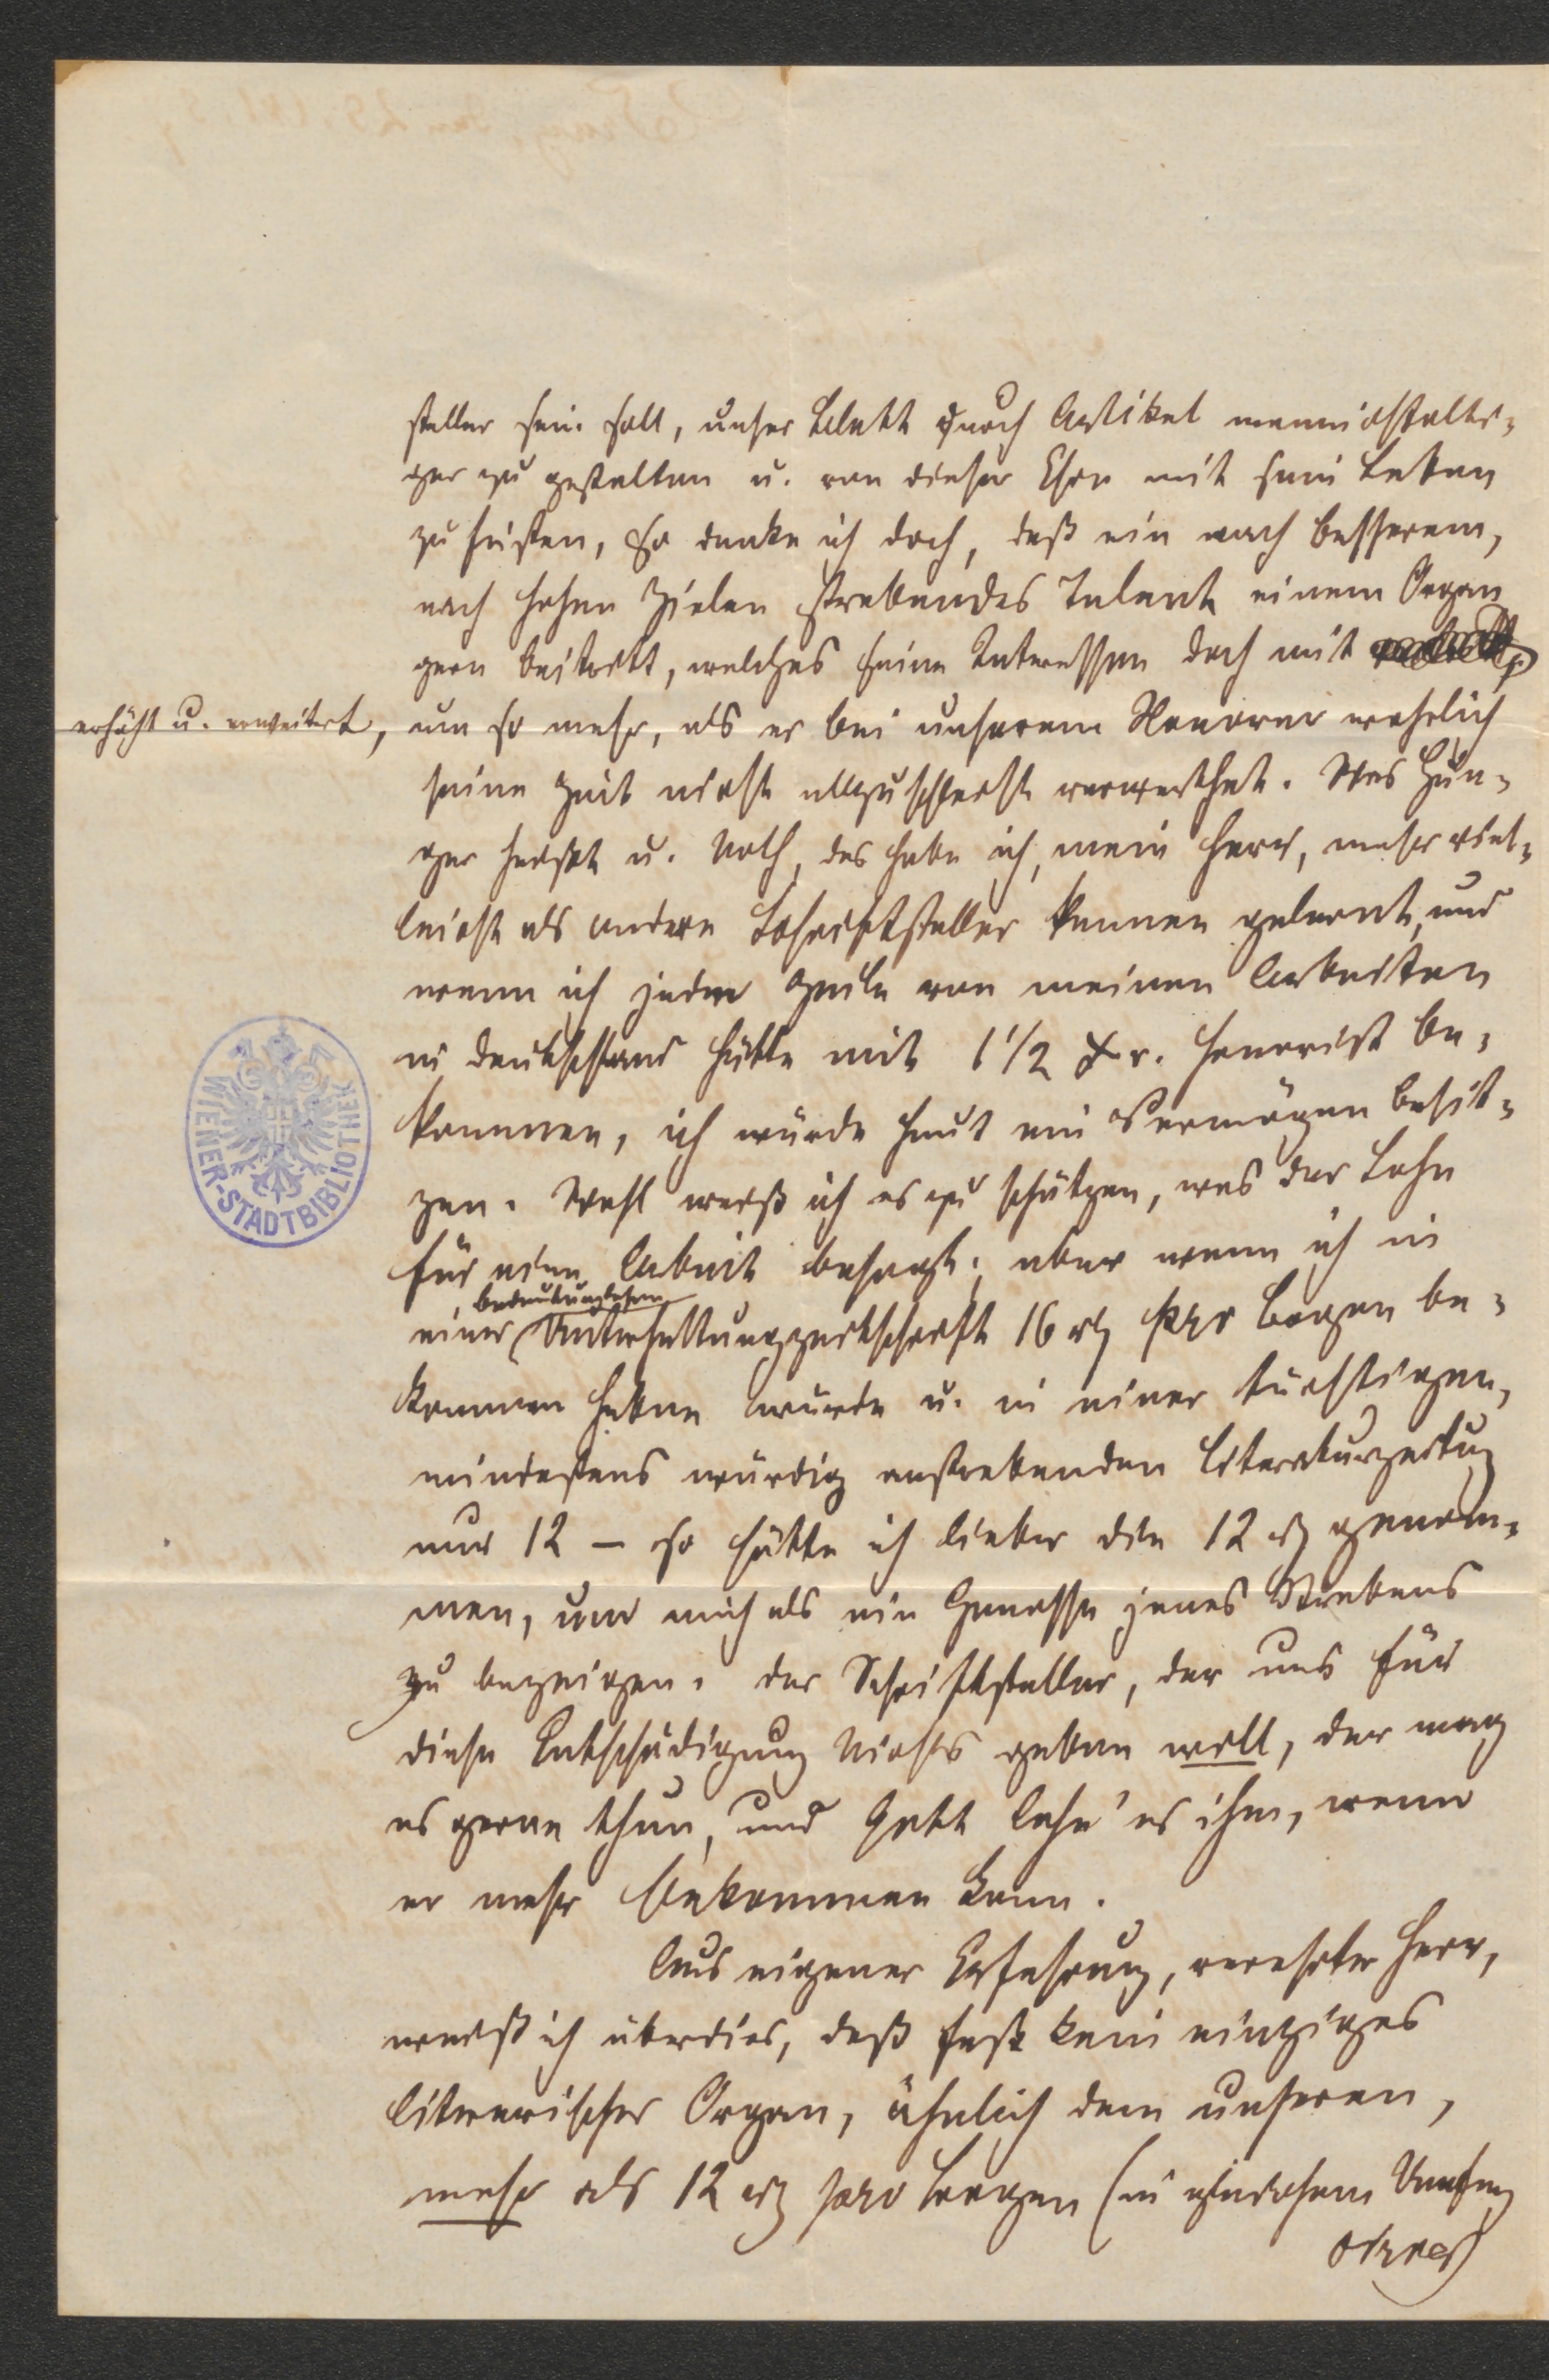 steller sein soll, unser Blatt durch Artikel mannichfalti-
ger zu gestalten u. von dieser Ehre mit sein Leben
zu fristen, so denke ich doch, daß ein nach besserem,
nach hohen Zielen strebendes Talent einem Organ
gern beitritt, welches seine Interessen doch mit
erhöht u. erweitert,
um so mehr, als er bei unserem Honorar wahrlich
seine Zeit nicht allzuschlecht verwerthet. Was Hun-
ger heißt u. Noth, das habe ich, mein Herr, mehr viel-
leicht als andere Schriftsteller kennen gelernt, und
wenn ich jede Zeile von meinen Arbeiten
in Deutschland hätte mit 1 1/2 xr. honorirt be-
kommen, ich würde heut ein Vermögen besit-
zen. Wohl weiß ich es zu schätzen, was der Lohn
für eine Arbeit besagt; aber wenn ich in
bedeutungslosen
einer Unterhaltungszeitschrift 16 rh pro Bogen be-
kommen haben würde u. in einer tüchtigen,
mindestens würdig anstrebenden Literaturzeitung
nur 12 – so hätte ich lieber die 12 rh genom-
men, um mich als ein Genosse jenes Strebens
zu bezeigen. Der Schriftsteller, der uns für
diese Entschädigung Nichts geben will, der mag
es gerne thun, und Gott lohn' es ihm, wenn
er mehr bekommen kann.
Aus eigener Erfahrung, verehrter Herr,
weiß ich überdies, daß fast kein einziges
literarisches Organ, ähnlich dem unseren,
mehr als 12 rh pro Bogen (in gleichem Umfang
WIENER-STADTBIBLIOTHEK